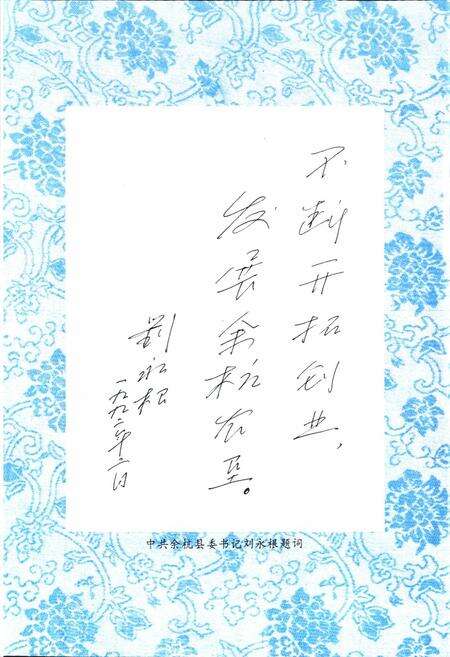 不断开拓创业，
发展余杭农垦。
刘永根
一九九二年二月
中共余杭县委书记刘永根题词